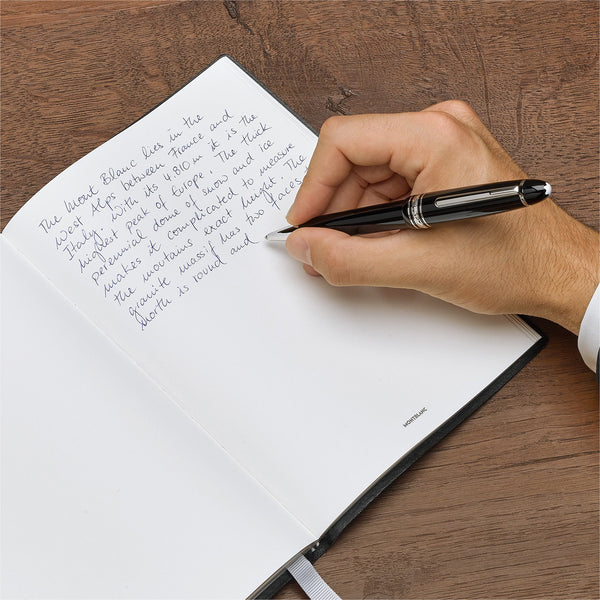 The Mont Blanc lies in the
West Alps between France and
Italy. With its 4.810 m it is the
highest peak of Europe. The thick
perennial dome of snow and ice
makes it complicated to measure
the moutains exact hight. The
granite massif has two faces:
North is round and
MONTBLANC